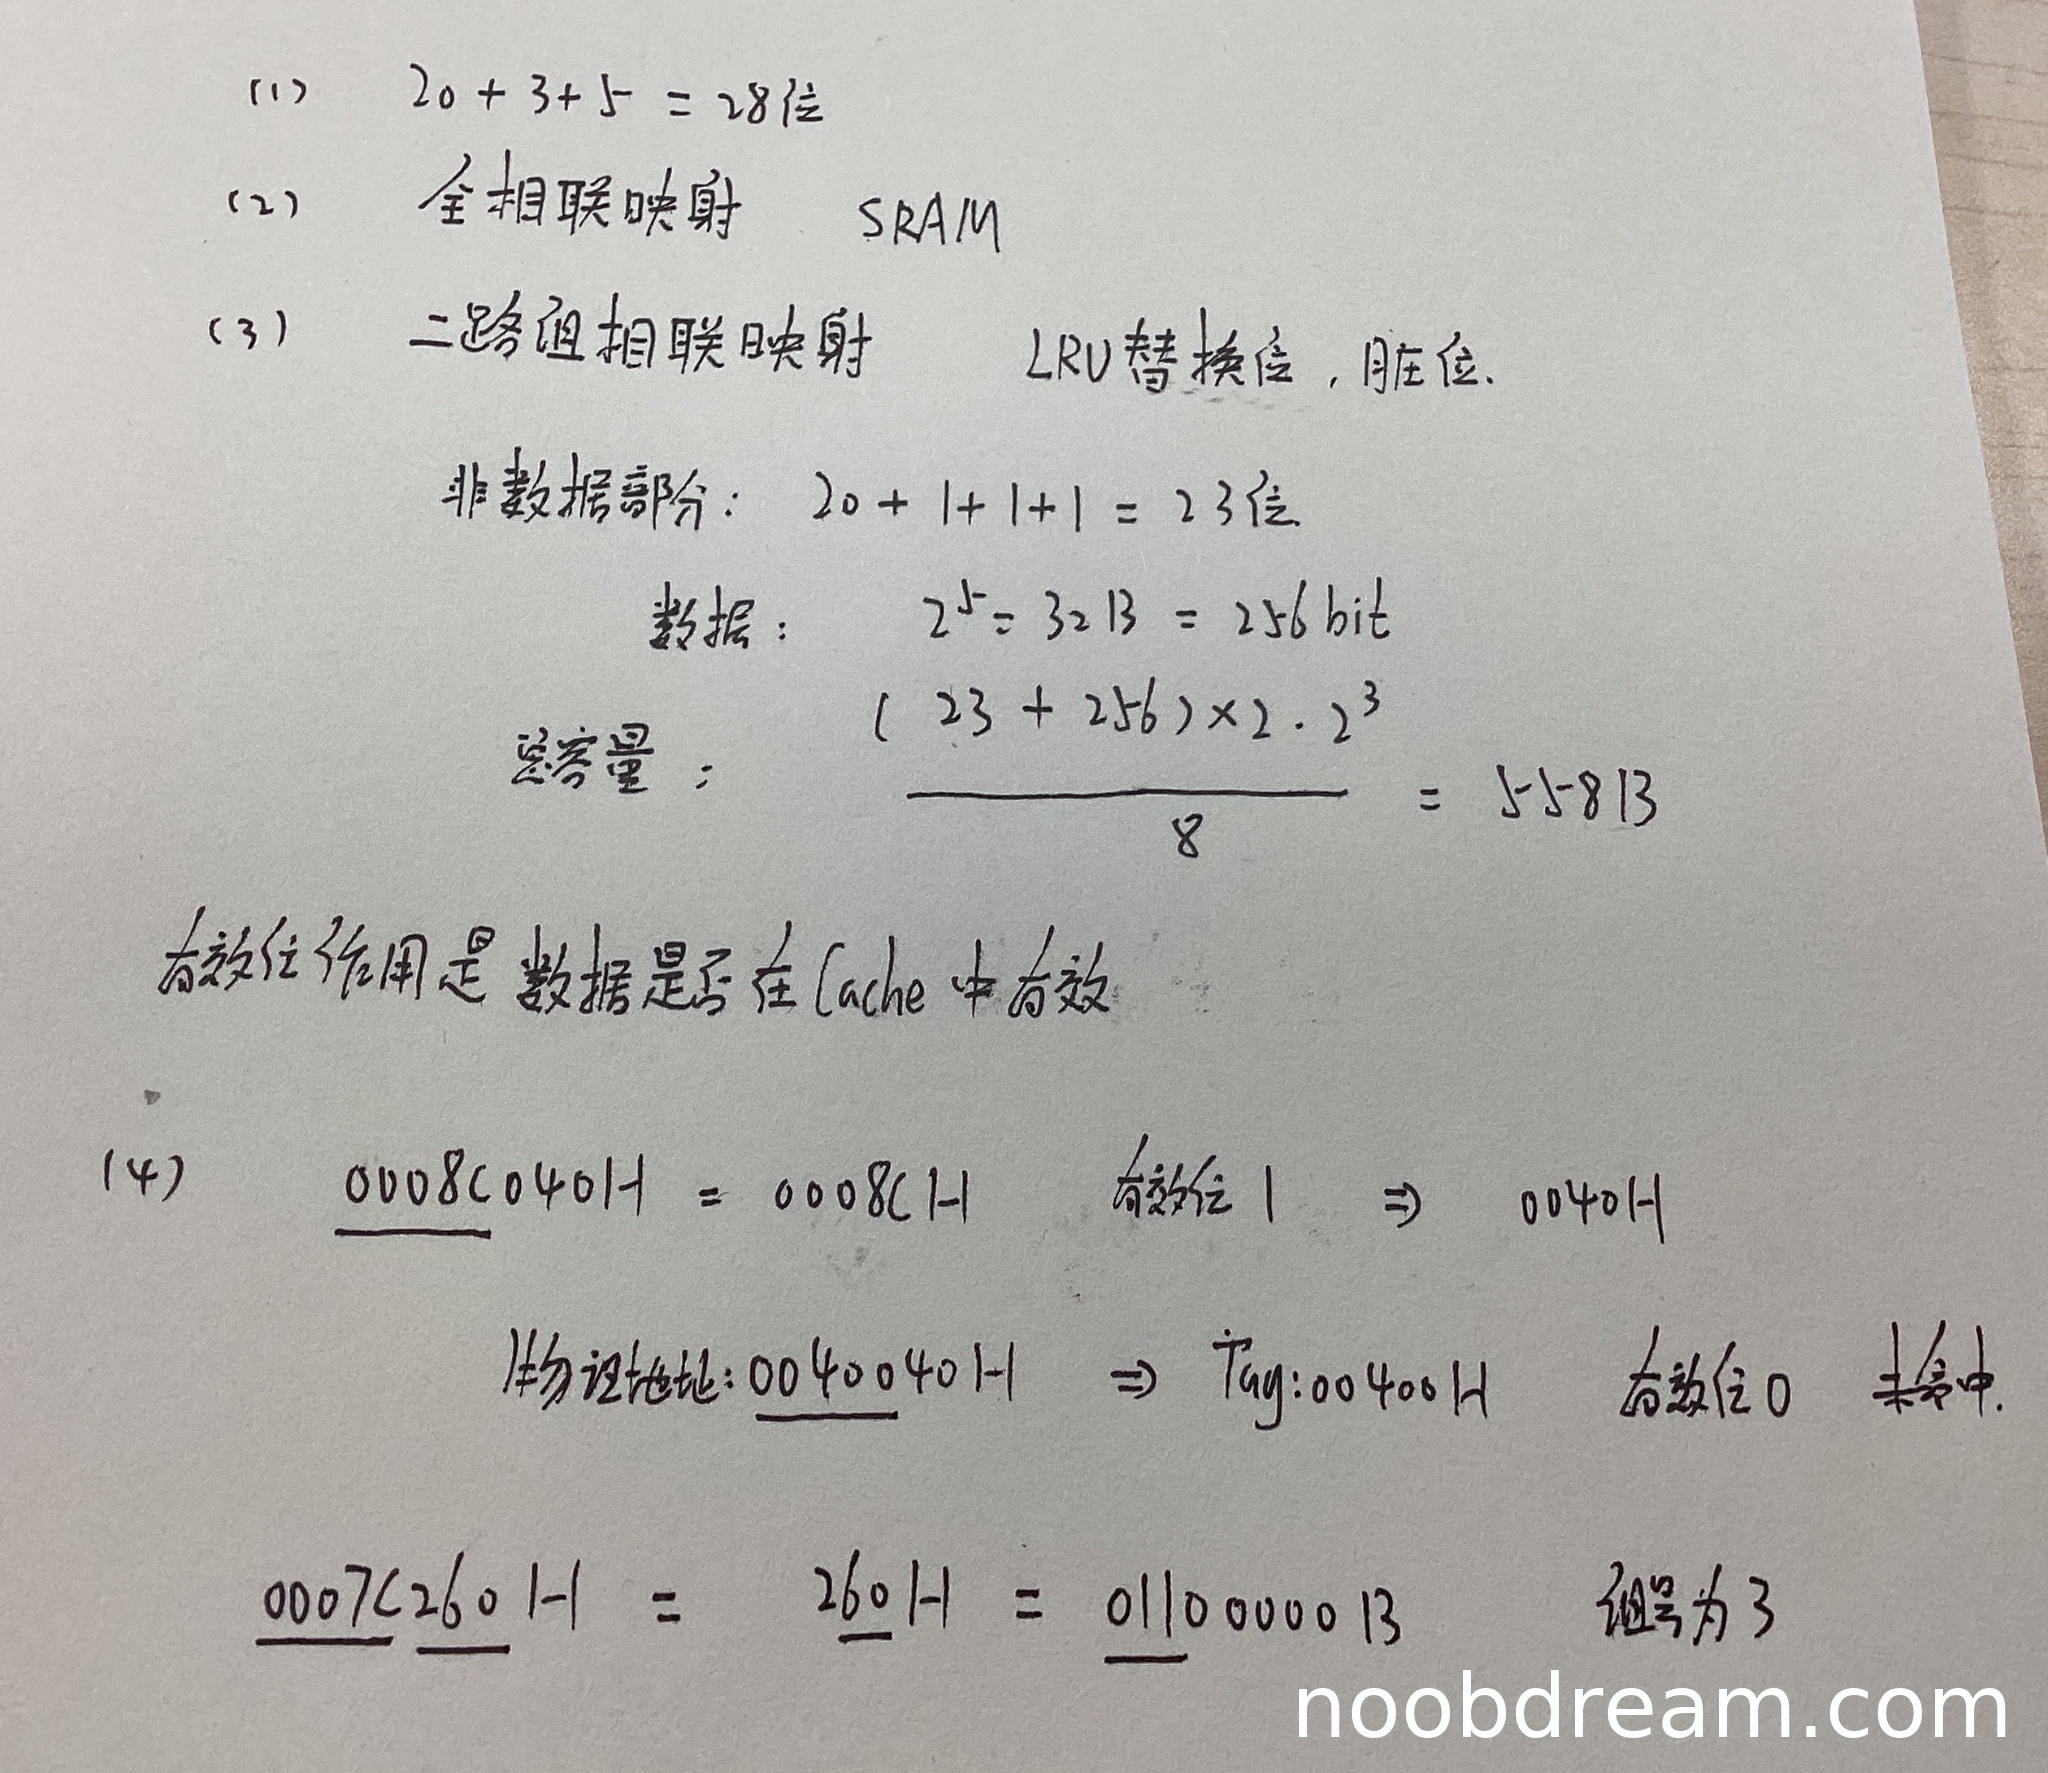 (1) 20 + 3 + 5 = 28位
(2) 全相联映射 SRAM
(3) 二路组相联映射 LRU替换位,脏位.
非数据部分: 20 + 1 + 1 + 1 = 23位
数据: 2⁵ = 32B = 256 bit
(23 + 256) × 2 · 2³
总容量: = 558B
8
有效位作用是数据是否在Cache中有效
(4) 0008C040H = 0008CH 有效位1 ⇒ 0040H
物理地址:0040040H ⇒ Tag:00400H 有效位0 未命中.
0007C260H = 260H = 01100000B 组号为3
noobdream.com